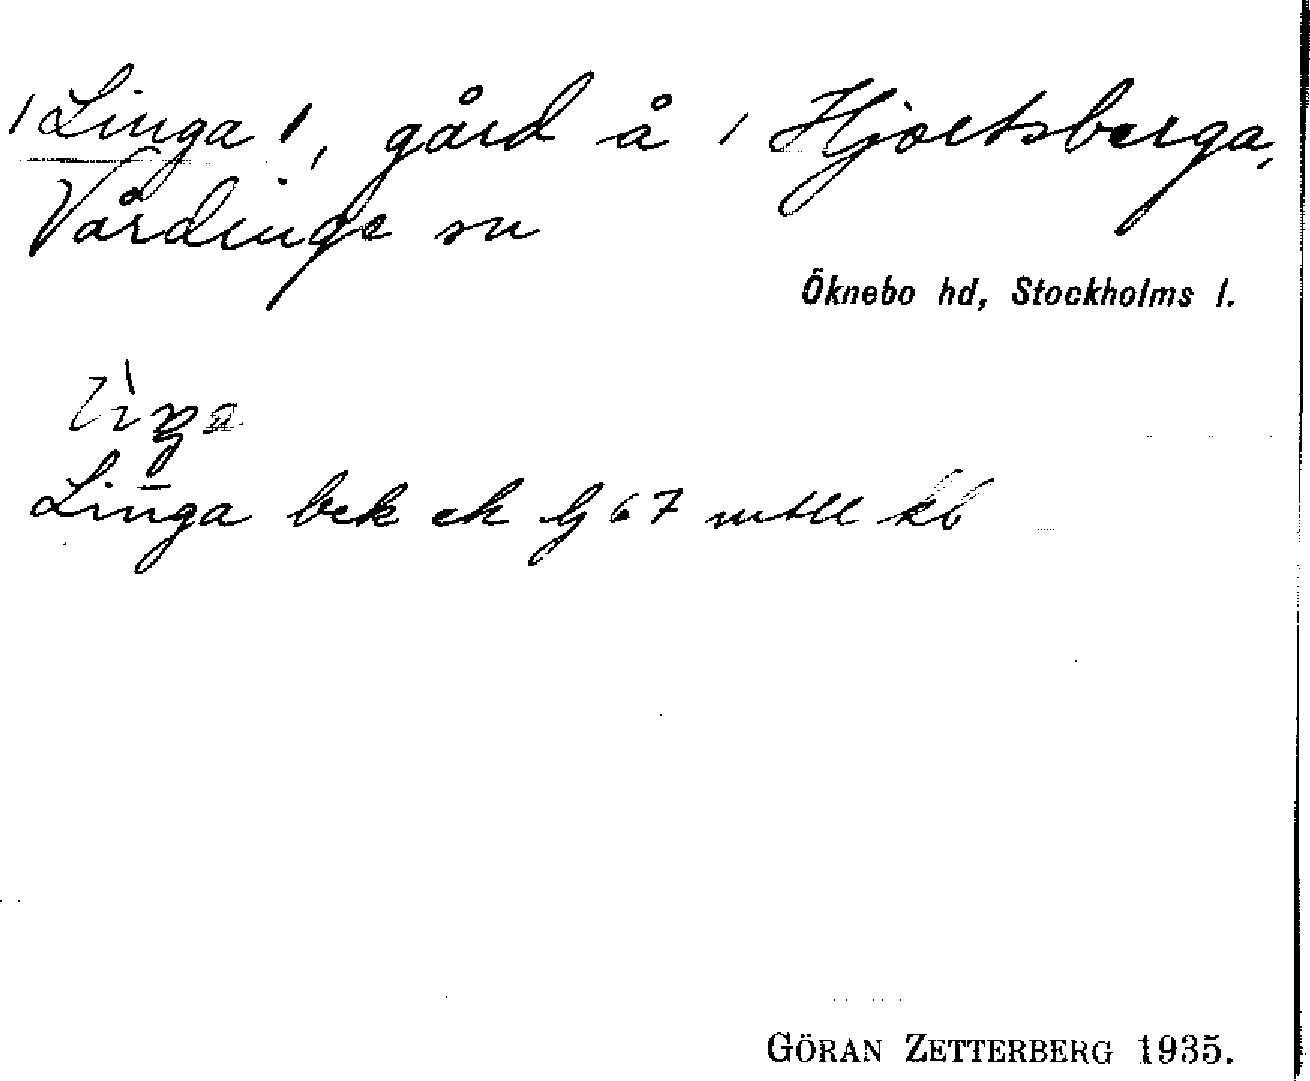 /Linga/, gård å / Hjortsberga,
Vårdinge sn
Öknebo hd, Stockholms l.
Linga bek ek bl 67 mtll kb
GÖRAN ZETTERBERG 1935.